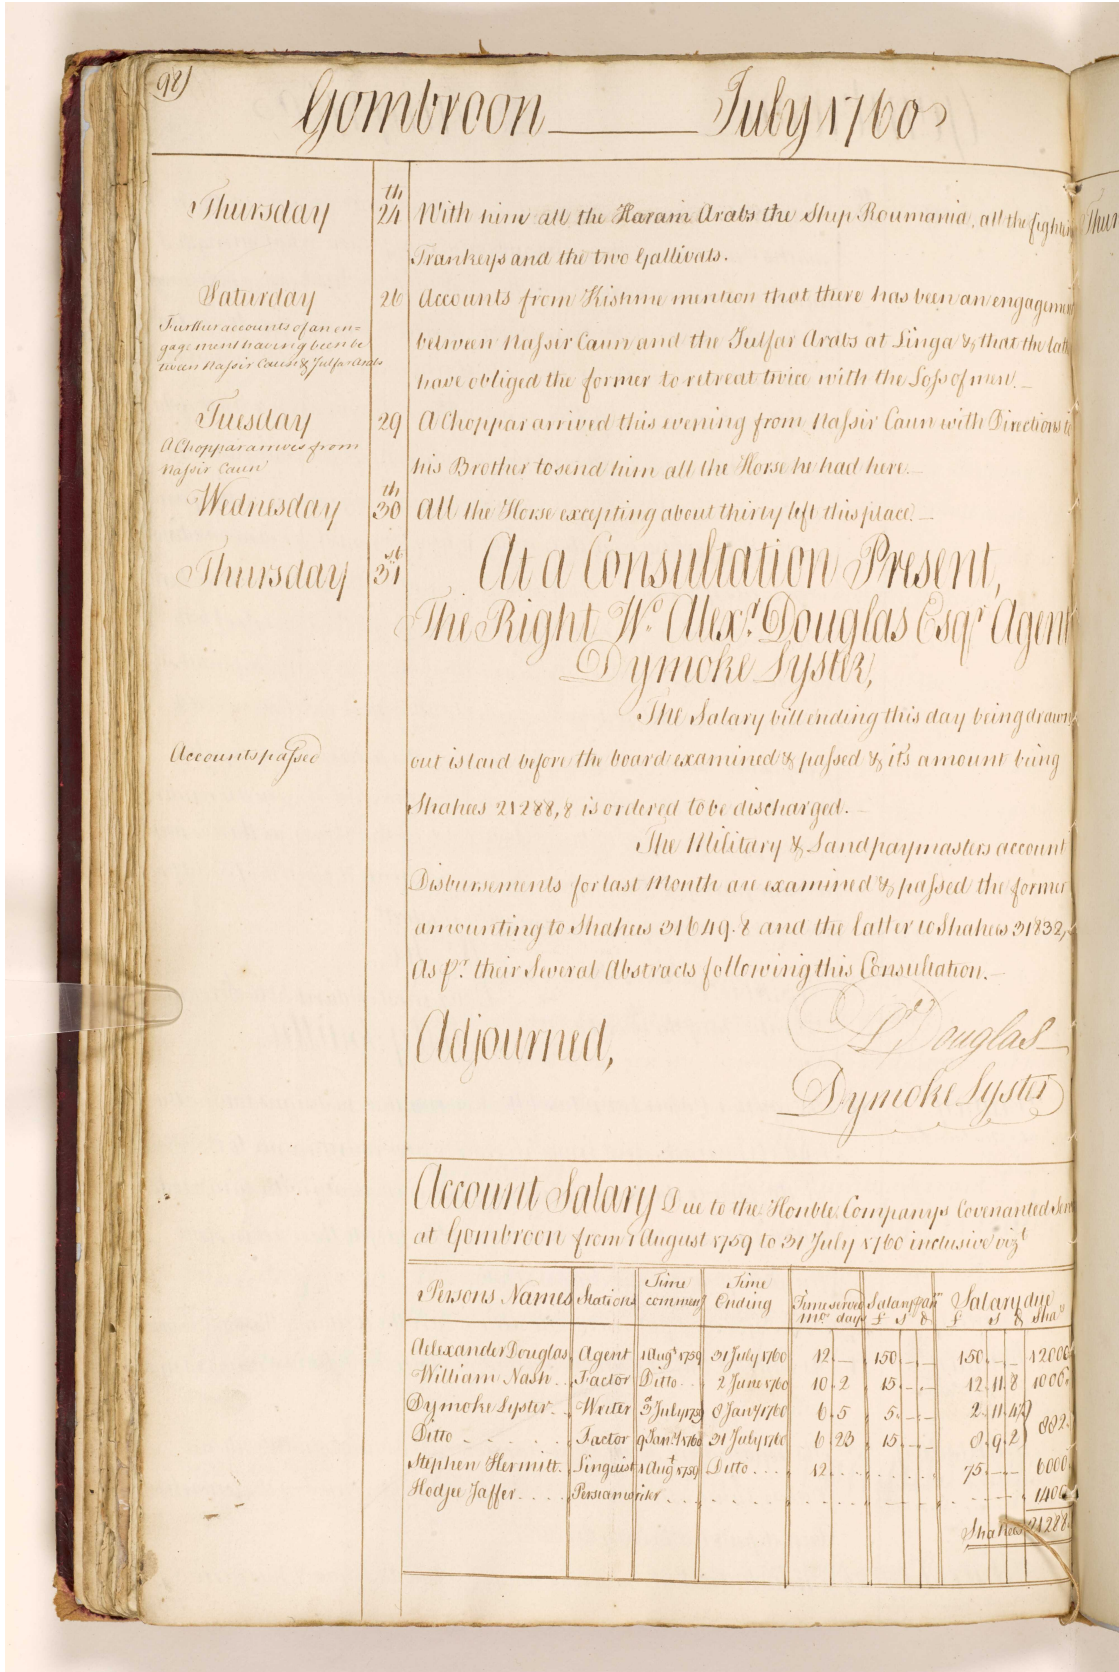 92)
Gombroon July 1760
Thursday 24th With him all the Haram Arabs the Ship Roumania, all the fighting
Trankeys and the two Gallivats.
Saturday 26 Accounts from Kishme mention that there has been an engagement
Further accounts of an en=
gagement having been be
tween Nassir Caun & Julfar Arabs
between Nassir Caun and the Julfar Arabs at Linga & that the latt
have obliged the former to retreat twice with the Loss of men.
Tuesday 29 A Choppar arrived this evening from Nassir Caun with Directions to
A Choppar arrives from
Nassir Caun
his Brother to send him all the Horse he had here.
Wednesday 30th All the Horse excepting about thirty left this place.
Thursday 31st At a Consultation Present,
The Right Wo. Alexr. Douglas Esqr. Agent
Dymoke Lyster,
The Salary bill ending this day being drawn
Accounts passed
out is laid before the board examined & passed & it's amount being
Shahees 21288,8 is ordered to be discharged.
The Military & Land paymasters account
Disbursements for last Month are examined & passed the former
amounting to Shahees 31649.8 and the latter to Shahees 31832,
As pr. their Several Abstracts following this Consultation.
Adjourned,
Douglas
Dymoke Lyster
Account Salary Due to the Honble. Companys Covenanted Serv
at Gombroon from 1 August 1759 to 31 July 1760 inclusive vizt
Persons Names Stations Time commencg Time Ending Time served mos. days Salary pr. an £ s d Salary due £ s d Shas
Aelexander Douglas Agent 1 Augt 1759 31 July 1760 12 — 150 — — 150 — — 12000
William Nash Factor Ditto 2 June 1760 10 2 15 — — 12 11 8 1006
Dymoke Lyster Writer 3d July 1759 8 Jany 1760 6 5 5 — — 2 11 4
Ditto Factor 9 Jany 1760 31 July 1760 6 23 15 — — 8 9 2 882
Stephen Hermitt. Linguist 1 Augt 1759 Ditto 12 75 — — 6000
Hodjee Jaffer Persian writer 1400
Shahees 21288